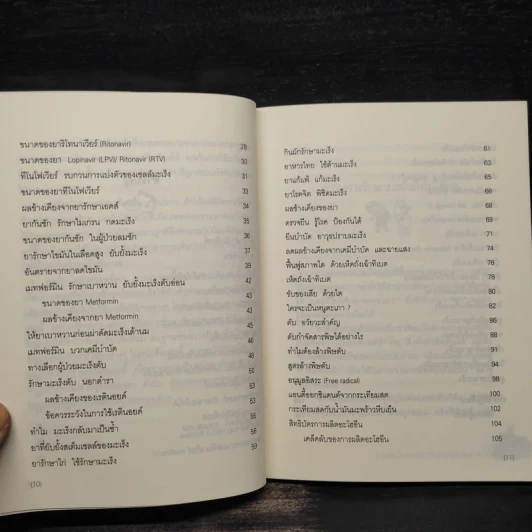 ขนาดของยาริโทนาเวียร์ (Ritonavir) 28
ขนาดของยา Lopinavir (LPV)/ Ritonavir (RTV) 30
ทีโนโฟเวียร์ รบกวนการแบ่งตัวของเซลล์มะเร็ง 31
ขนาดของยาทีโนโฟเวียร์ 33
ผลข้างเคียงจากยารักษาเอดส์ 34
ยากันชัก รักษาไมเกรน กดมะเร็ง 35
ขนาดของยากันชัก ในผู้ป่วยลมชัก 36
ยารักษาไขมันในเลือดสูง ยับยั้งมะเร็ง 37
อันตรายจากยาลดไขมัน 39
เมทฟอร์มิน รักษาเบาหวาน ยับยั้งมะเร็งตับอ่อน 40
ขนาดของยา Metformin 42
ผลข้างเคียงจากยา Metformin 43
ให้ยาเบาหวานก่อนผ่าตัดมะเร็งเต้านม 45
เมทฟอร์มิน บวกเคมีบำบัด 46
ทางเลือกผู้ป่วยมะเร็งตับ 48
รักษามะเร็งตับ นอกตำรา 50
ผลข้างเคียงของเรตินอยด์ 53
ข้อควรระวังในการใช้เรตินอยด์ 53
ทำไม มะเร็งกลับมาเป็นซ้ำ 55
ยาที่ยับยั้งสเต็มเซลล์ของมะเร็ง 58
ยารักษาไก่ ใช้รักษามะเร็ง 59
(10)
กินผักรักษามะเร็ง 61
อาหารไทย ใช้ต้านมะเร็ง 63
ยาแก้แพ้ แก้มะเร็ง 65
ยาโรคจิต พิชิตมะเร็ง 66
ผลข้างเคียงของยา 68
ตรวจยีน รู้โรค ป้องกันได้ 69
ยีนบำบัด อาวุธปราบมะเร็ง 71
ลดผลข้างเคียงจากเคมีบำบัด และฉายแสง 74
ฟื้นฟูสภาพไต ด้วยเห็ดถั่งเช่าทิเบต 76
เห็ดถั่งเช่าทิเบต 78
ขับของเสีย ด้วยไต 80
ใครจะเป็นหนูตะเภา ? 82
ตับ อวัยวะสำคัญ 86
ตับกำจัดสารพิษได้อย่างไร 88
ทำไมต้องล้างพิษตับ 91
สูตรล้างพิษตับ 94
อนุมูลอิสระ (Free radical) 98
แอนตี้ออกซิแดนต์จากกระเทียมสด 100
กระเทียมสดกับน้ำมันมะพร้าวหีบเย็น 102
สิทธิบัตรการผลิตอะโฮอีน 104
เคล็ดลับของการผลิตอะโฮอีน 105
(11)